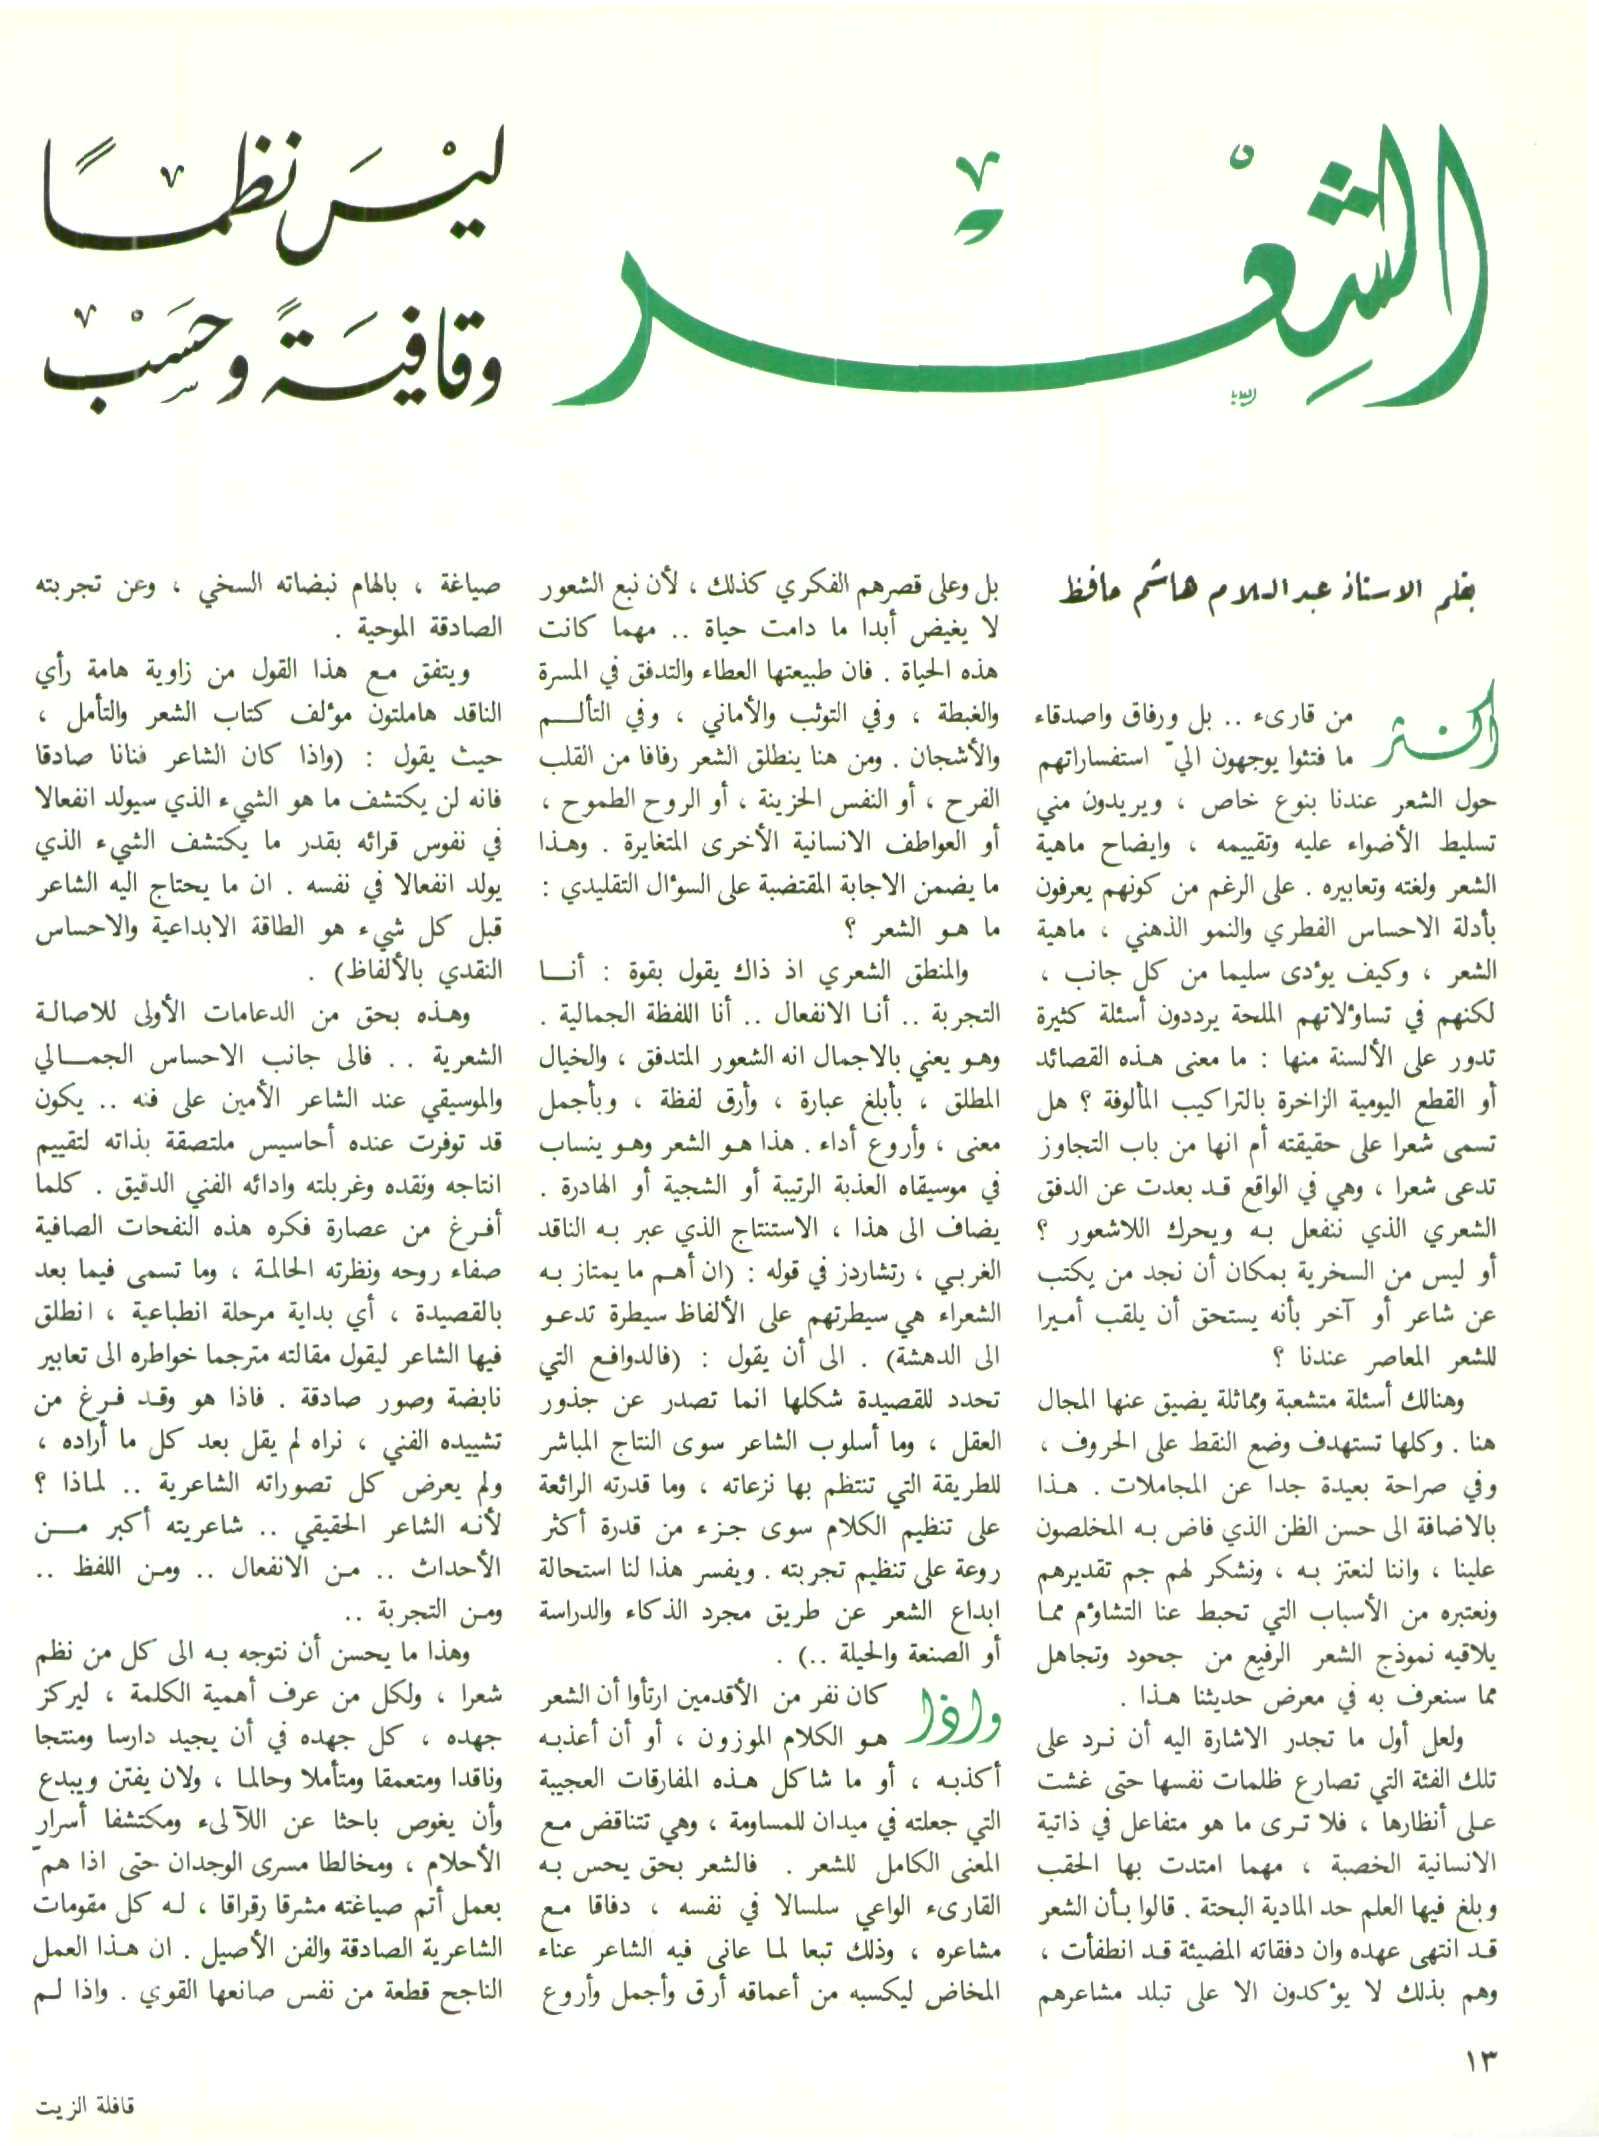 الشِّعْر
ليْسَ نظمًا
وقافيَةً وحَسْب
بقلم الاستاذ عبد السلام هاشم حافظ
اكثر من قارىء .. بل ورفاق واصدقاء
ما فتئوا يوجهون اليّ استفساراتهم
حول الشعر عندنا بنوع خاص ، ويريدون مني
تسليط الأضواء عليه وتقييمه ، وايضاح ماهية
الشعر ولغته وتعابيره . على الرغم من كونهم يعرفون
بأدلة الاحساس الفطري والنمو الذهني ، ماهية
الشعر ، وكيف يؤدى سليما من كل جانب ،
لكنهم في تساؤلاتهم الملحة يرددون أسئلة كثيرة
تدور على الألسنة منها : ما معنى هذه القصائد
أو القطع اليومية الزاخرة بالتراكيب المألوفة ؟ هل
تسمى شعرا على حقيقته أم انها من باب التجاوز
تدعى شعرا ، وهي في الواقع قد بعدت عن الدفق
الشعري الذي ننفعل به ويحرك اللاشعور ؟
أو ليس من السخرية بمكان أن نجد من يكتب
عن شاعر أو آخر بأنه يستحق أن يلقب أميرا
للشعر المعاصر عندنا ؟
وهنالك أسئلة متشعبة ومماثلة يضيق عنها المجال
هنا . وكلها تستهدف وضع النقط على الحروف ،
وفي صراحة بعيدة جدا عن المجاملات . هذا
بالاضافة الى حسن الظن الذي فاض به المخلصون
علينا ، واننا لنعتز به ، ونشكر لهم جم تقديرهم
ونعتبره من الأسباب التي تحبط عنا التشاؤم مما
يلاقيه نموذج الشعر الرفيع من جحود وتجاهل
مما سنعرف به في معرض حديثنا هذا .
ولعل أول ما تجدر الاشارة اليه أن نرد على
تلك الفئة التي تصارع ظلمات نفسها حتى غشت
على أنظارها ، فلا ترى ما هو متفاعل في ذاتية
الانسانية الخصبة ، مهما امتدت بها الحقب
وبلغ فيها العلم حد المادية البحتة . قالوا بأن الشعر
قد انتهى عهده وان دفقاته المضيئة قد انطفأت ،
وهم بذلك لا يؤكدون الا على تبلد مشاعرهم
بل وعلى قصرهم الفكري كذلك ، لأن نبع الشعور
لا يغيض أبدا ما دامت حياة .. مهما كانت
هذه الحياة . فان طبيعتها العطاء والتدفق في المسرة
والغبطة ، وفي التوثب والأماني ، وفي التألم
والأشجان . ومن هنا ينطلق الشعر رفافا من القلب
الفرح ، أو النفس الحزينة ، أو الروح الطموح ،
أو العواطف الانسانية الأخرى المتغايرة . وهذا
ما يضمن الاجابة المقتضبة على السؤال التقليدي :
ما هو الشعر ؟
والمنطق الشعري اذ ذاك يقول بقوة : أنا
التجربة .. أنا الانفعال .. أنا اللفظة الجمالية .
وهو يعني بالاجمال انه الشعور المتدفق ، والخيال
المطلق ، بأبلغ عبارة ، وأرق لفظة ، وبأجمل
معنى ، وأروع أداء . هذا هو الشعر وهو ينساب
في موسيقاه العذبة الرتيبة أو الشجية أو الهادرة .
يضاف الى هذا ، الاستنتاج الذي عبر به الناقد
الغربي ، رتشاردز في قوله : (ان أهم ما يمتاز به
الشعراء هي سيطرتهم على الألفاظ سيطرة تدعو
الى الدهشة) . الى أن يقول : (فالدوافع التي
تحدد للقصيدة شكلها انما تصدر عن جذور
العقل ، وما أسلوب الشاعر سوى النتاج المباشر
للطريقة التي تنتظم بها نزعاته ، وما قدرته الرائعة
على تنظيم الكلام سوى جزء من قدرة أكثر
روعة على تنظيم تجربته . ويفسر هذا لنا استحالة
ابداع الشعر عن طريق مجرد الذكاء والدراسة
أو الصنعة والحيلة ..) .
واذا كان نفر من الأقدمين ارتأوا أن الشعر
هو الكلام الموزون ، أو أن أعذبه
أكذبه ، أو ما شاكل هذه المفارقات العجيبة
التي جعلته في ميدان للمساومة ، وهي تتناقض مع
المعنى الكامل للشعر . فالشعر بحق يحس به
القارىء الواعي سلسالا في نفسه ، دفاقا مع
مشاعره ، وذلك تبعا لما عانى فيه الشاعر عناء
المخاض ليكسبه من أعماقه أرق وأجمل وأروع
صياغة ، بالهام نبضاته السخي ، وعن تجربته
الصادقة الموحية .
ويتفق مع هذا القول من زاوية هامة رأي
الناقد هاملتون مؤلف كتاب الشعر والتأمل ،
حيث يقول : (واذا كان الشاعر فنانا صادقا
فانه لن يكتشف ما هو الشيء الذي سيولد انفعالا
في نفوس قرائه بقدر ما يكتشف الشيء الذي
يولد انفعالا في نفسه . ان ما يحتاج اليه الشاعر
قبل كل شيء هو الطاقة الابداعية والاحساس
النقدي بالألفاظ) .
وهذه بحق من الدعامات الأولى للاصالة
الشعرية .. فالى جانب الاحساس الجمالي
والموسيقي عند الشاعر الأمين على فنه .. يكون
قد توفرت عنده أحاسيس ملتصقة بذاته لتقييم
انتاجه ونقده وغربلته وادائه الفني الدقيق . كلما
أفرغ من عصارة فكره هذه النفحات الصافية
صفاء روحه ونظرته الحالمة ، وما تسمى فيما بعد
بالقصيدة ، أي بداية مرحلة انطباعية ، انطلق
فيها الشاعر ليقول مقالته مترجما خواطره الى تعابير
نابضة وصور صادقة . فاذا هو وقد فرغ من
تشييده الفني ، نراه لم يقل بعد كل ما أراده ،
ولم يعرض كل تصوراته الشاعرية .. لماذا ؟
لأنه الشاعر الحقيقي .. شاعريته أكبر من
الأحداث .. من الانفعال .. ومن اللفظ ..
ومن التجربة ..
وهذا ما يحسن أن نتوجه به الى كل من نظم
شعرا ، ولكل من عرف أهمية الكلمة ، ليركز
جهده ، كل جهده في أن يجيد دارسا ومنتجا
وناقدا ومتعمقا ومتأملا وحالما ، ولان يفتن ويبدع
وأن يغوص باحثا عن اللآلىء ومكتشفا أسرار
الأحلام ، ومخالطا مسرى الوجدان حتى اذا همّ
بعمل أتم صياغته مشرقا رقراقا ، له كل مقومات
الشاعرية الصادقة والفن الأصيل . ان هذا العمل
الناجح قطعة من نفس صانعها القوي . واذا لم
١٣
قافلة الزيت